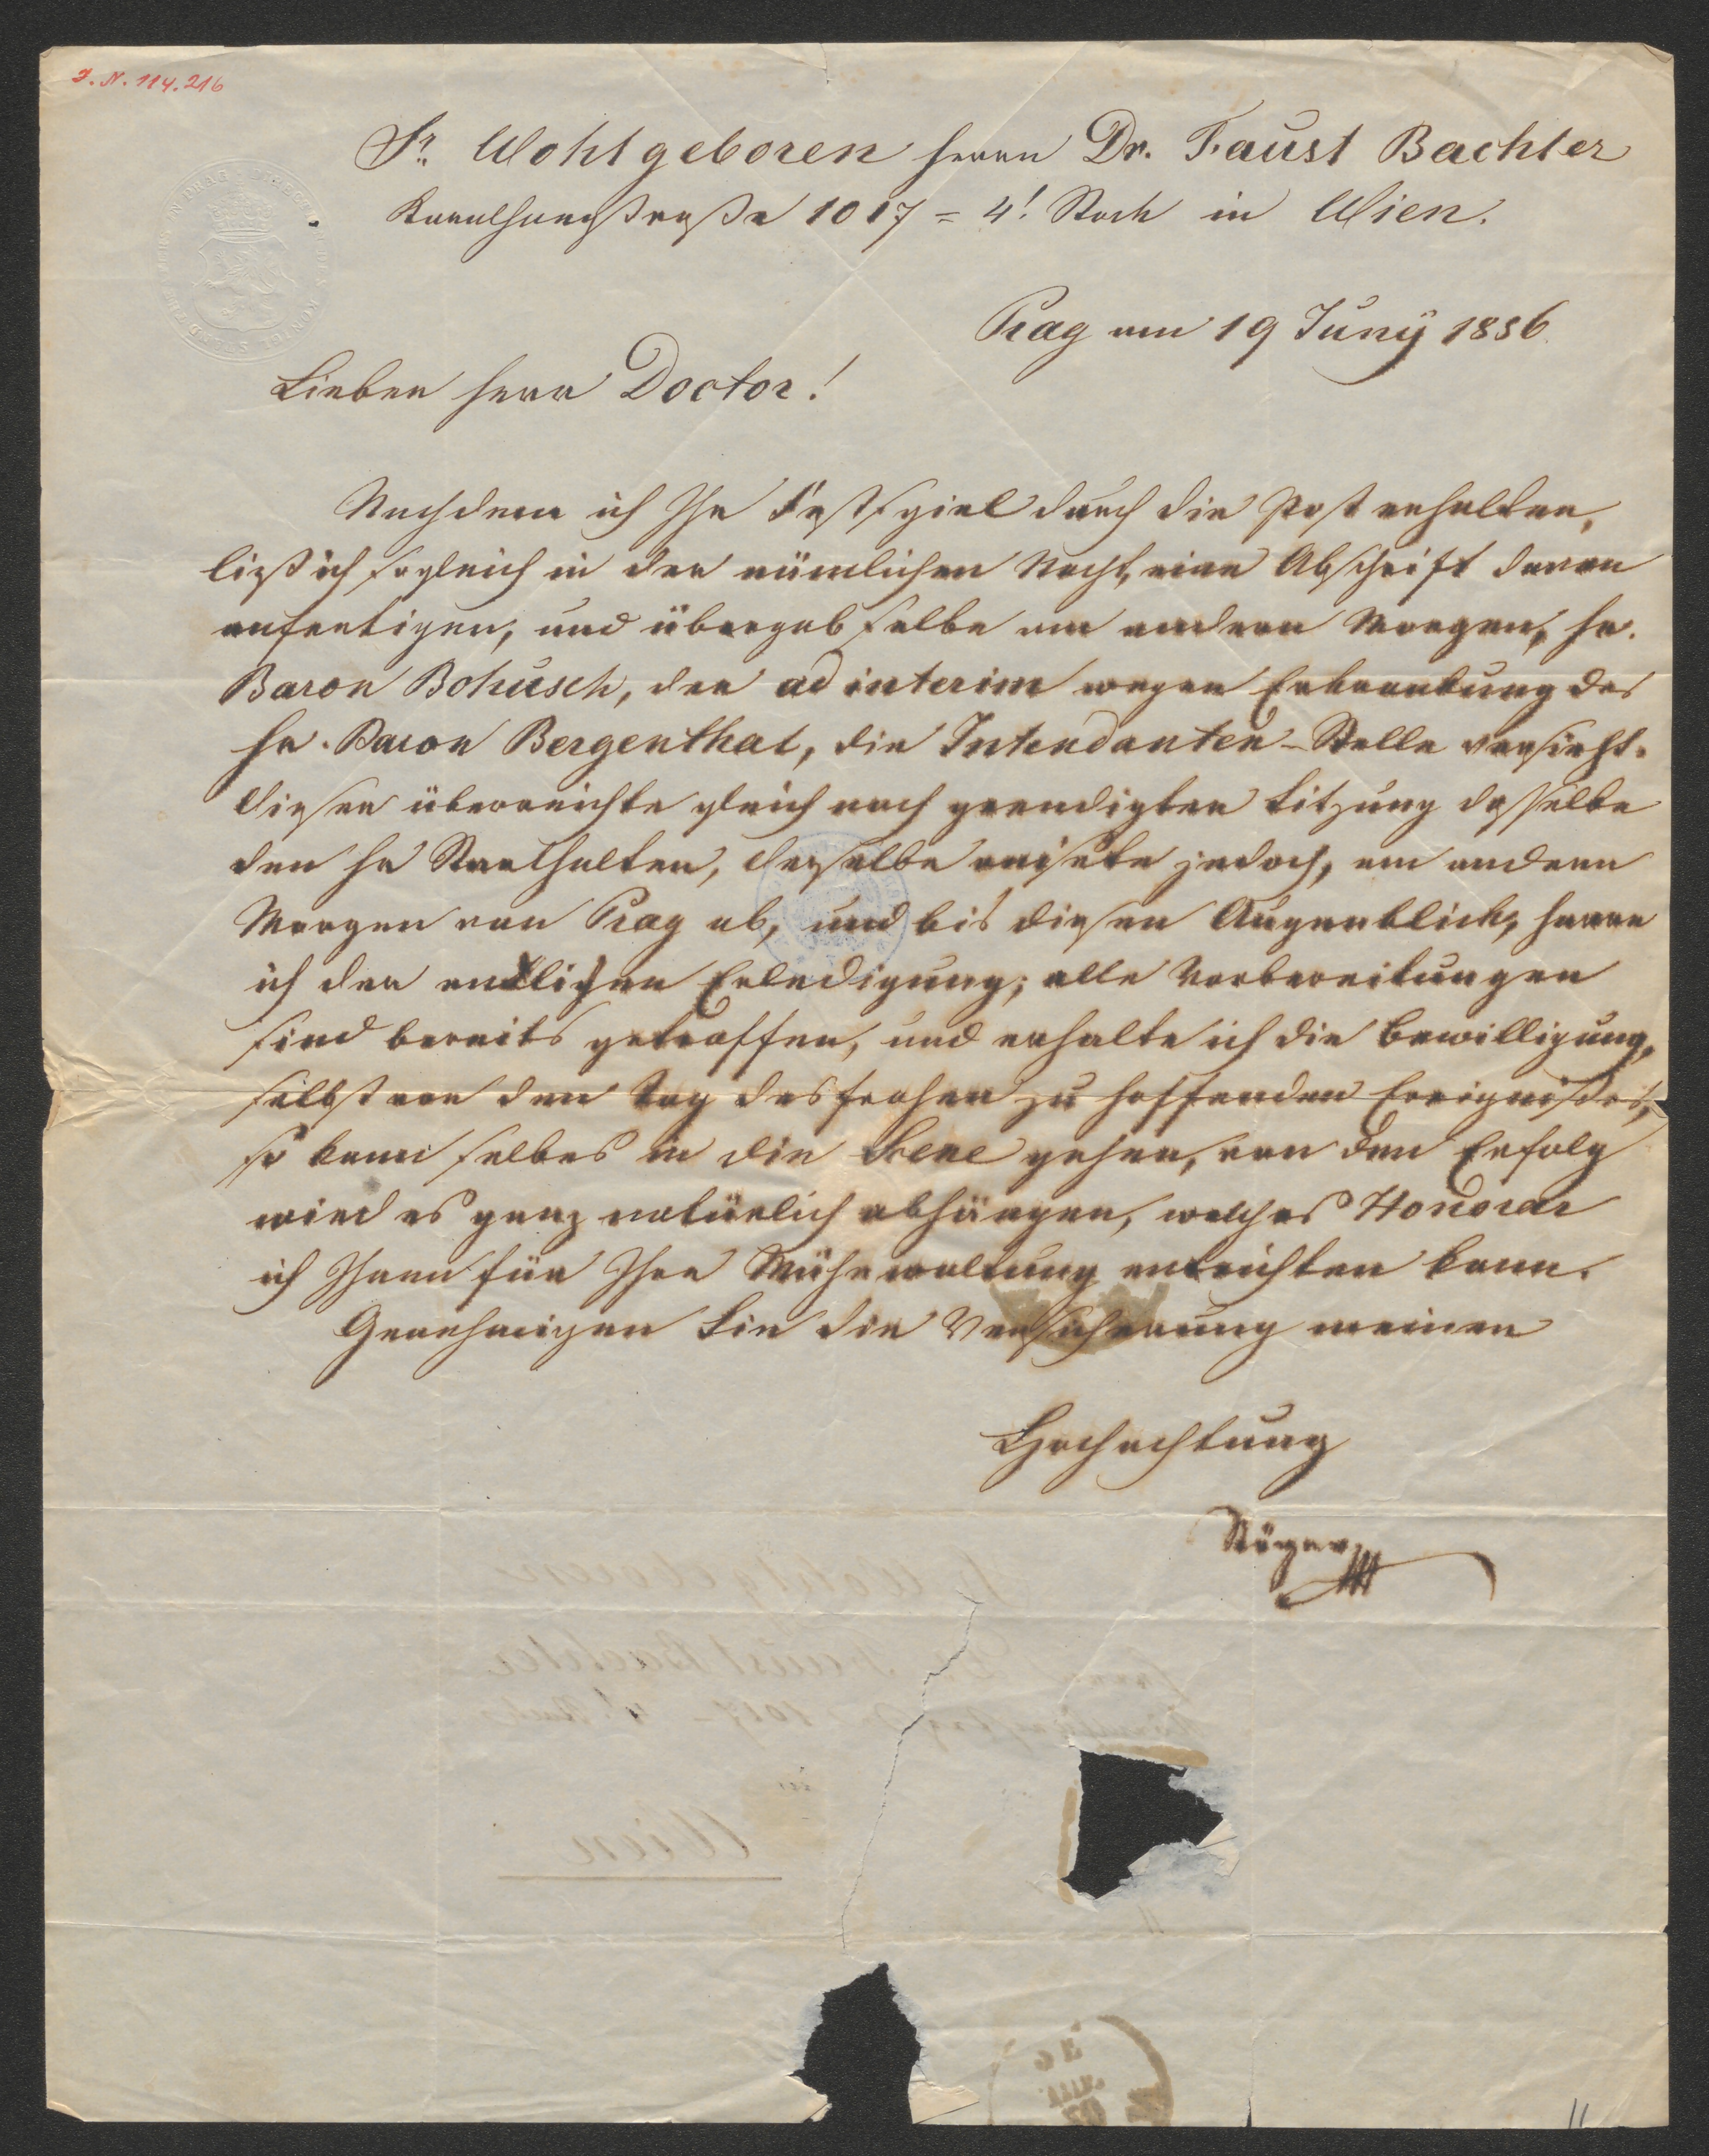 I. N. 114.216
Sr. Wohlgeboren Herrn Dr. Faust Bachler
Kärnthnerstraße 1017 = 4t. Stock in Wien.
Prag am 19 Juny 1856.
Lieber Herr Doctor!
Nachdem ich Ihr Festspiel durch die Post erhalten,
ließ ich sogleich in der nämlichen Nacht, eine Abschrift davon
anfertigen, und übergab selbe am andern Morgen, Hr.
Baron Bohusch, der ad interim wegen Erkrankung des
Hr. Baron Bergenthal, die Intendanten-Stelle versieht.
Dieser überreichte gleich nach geendigter Sitzung dasselbe
dem Hr Statthalter, derselbe reisete jedoch, am andern
Morgen von Prag ab, und bis diesen Augenblick, harre
ich der endlichen Erledigung; alle Vorbereitungen
sind bereits getroffen, und erhalte ich die Bewilligung,
selbst vor dem Tag des frohen zu hoffenden Ereignißes,
so kann selbes in die Scene gehen, von dem Erfolg
wird es ganz natürlich abhängen, welches Honorar
ich Ihnen für Ihre Mühewaltung entrichten kann.
Genehmigen Sie die Versicherung meiner
Hochachtung
Stöger